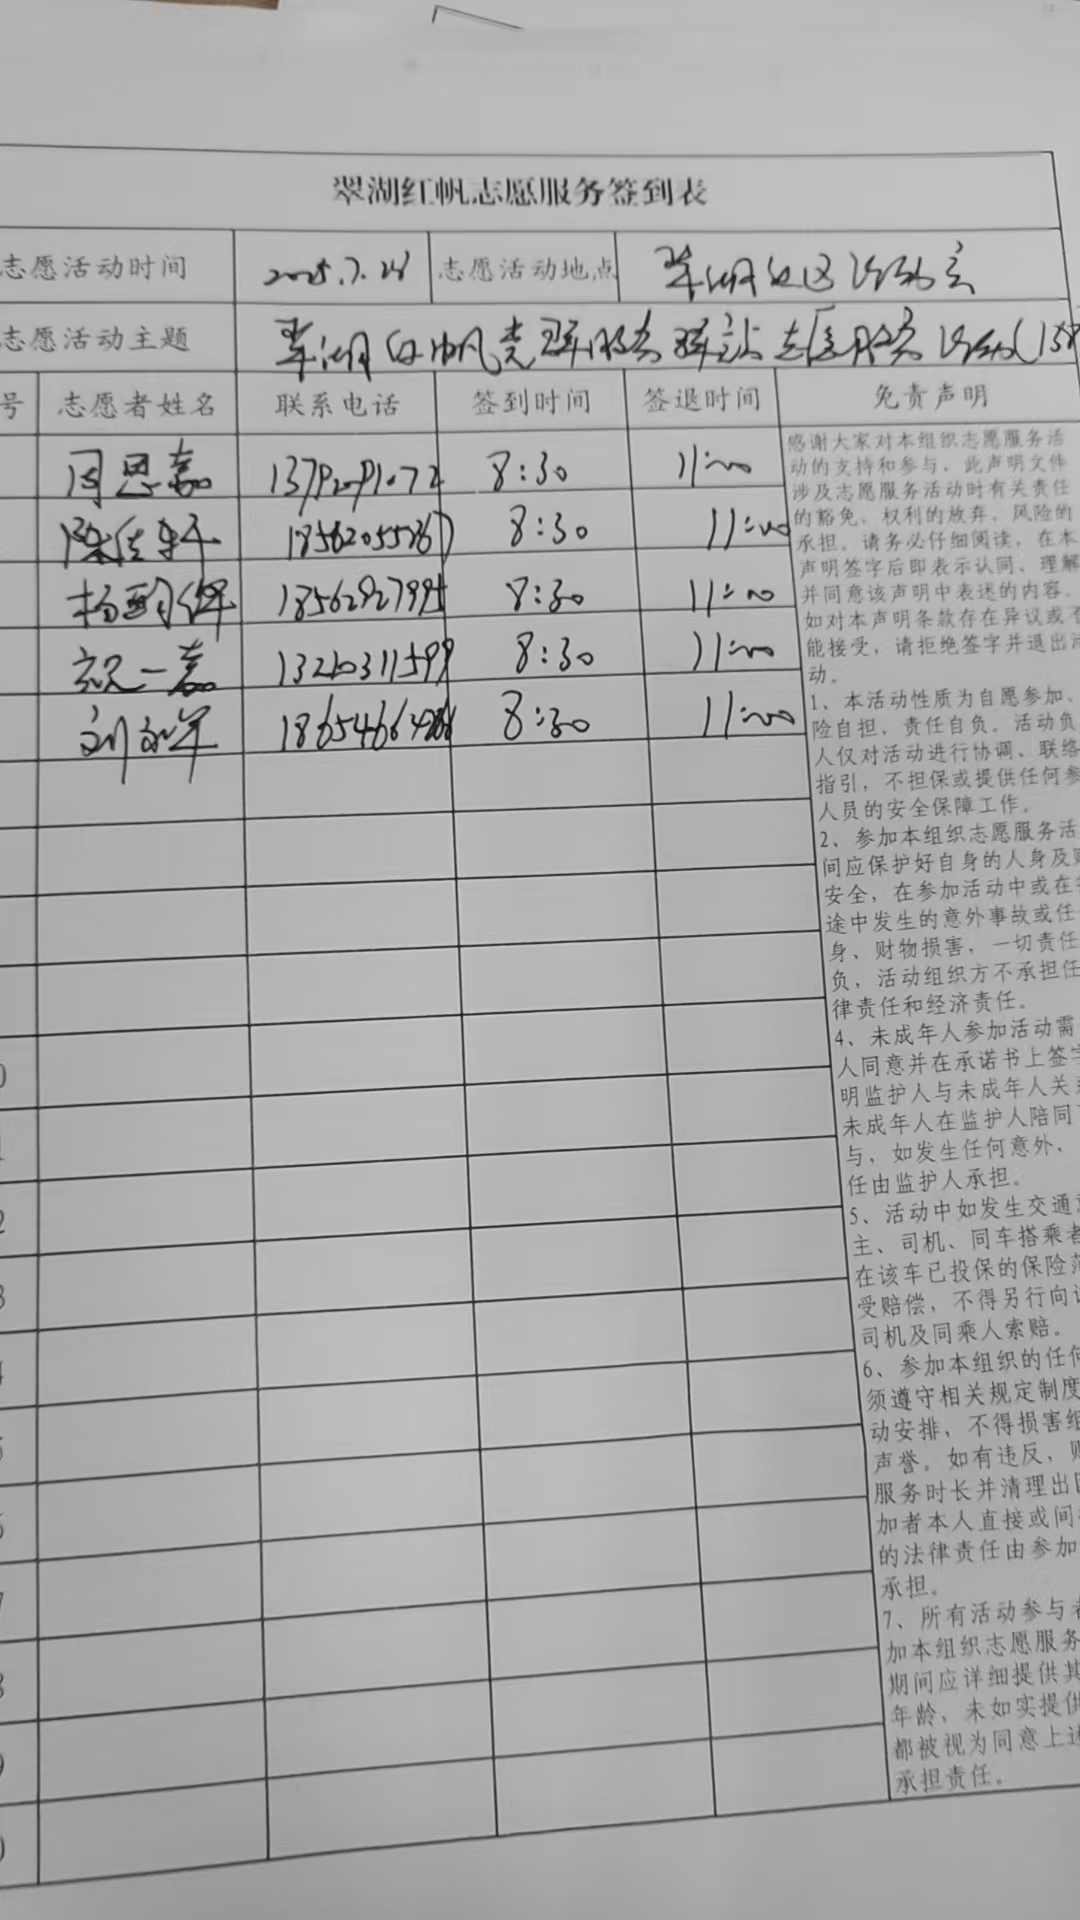 翠湖红帆志愿服务签到表
志愿活动时间 2025.7. 志愿活动地点 翠湖社区活动室
志愿活动主题 翠湖红帆党群服务驿站志愿服务活动(158
号 志愿者姓名 联系电话 签到时间 签退时间 免责声明
周思嘉 8:30 11:00
陈佳轩 8:30 11:00
杨 8:30 11:00
祝一嘉 13210311599 8:30 11:00
刘 8:30 11:00
感谢大家对本组织志愿服务活
动的支持和参与，此声明文件
涉及志愿服务活动时有关责任
的豁免，权利的放弃，风险的
承担。请务必仔细阅读，在本
声明签字后即表示认同、理解
并同意该声明中表述的内容。
如对本声明条款存在异议或不
能接受，请拒绝签字并退出活
动。
1、本活动性质为自愿参加、
险自担、责任自负。活动负
人仅对活动进行协调、联络
指引，不担保或提供任何参
人员的安全保障工作。
2、参加本组织志愿服务活
间应保护好自身的人身及财
安全，在参加活动中或在
途中发生的意外事故或任
身、财物损害，一切责任
负，活动组织方不承担任
律责任和经济责任。
4、未成年人参加活动需
人同意并在承诺书上签字
明监护人与未成年人关系
未成年人在监护人陪同
与，如发生任何意外，
任由监护人承担。
5、活动中如发生交通意
主、司机、同车搭乘者
在该车已投保的保险范
受赔偿，不得另行向
司机及同乘人索赔。
6、参加本组织的任何
须遵守相关规定制度
动安排，不得损害组
声誉。如有违反，则
服务时长并清理出
加者本人直接或间
的法律责任由参加
承担。
7、所有活动参与者
加本组织志愿服务
期间应详细提供其
年龄，未如实提供
都被视为同意上述
承担责任。